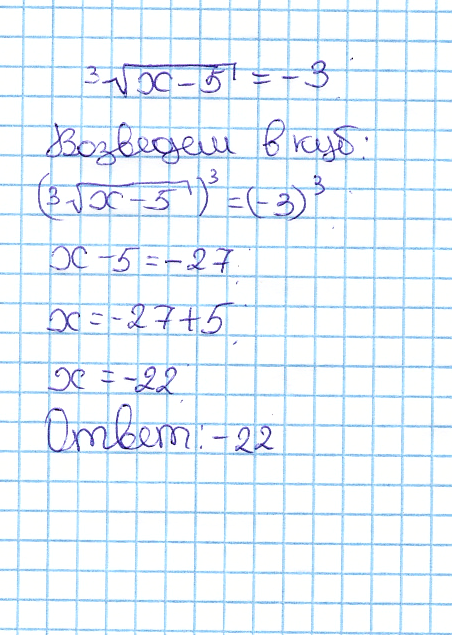 ³√(x-5) = -3
Возведем в куб:
(³√(x-5))³ = (-3)³
x - 5 = -27
x = -27+5
x = -22
Ответ: -22